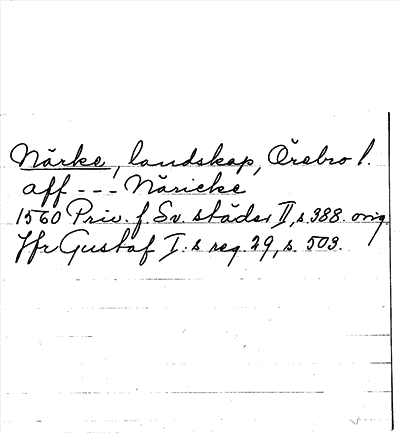 Närke, landskap, Örebro l.
aff --- Näricke
1560 Priv. f. Sv. städer II, s. 388. orig.
Jfr Gustaf I:s reg. 29, s. 503.